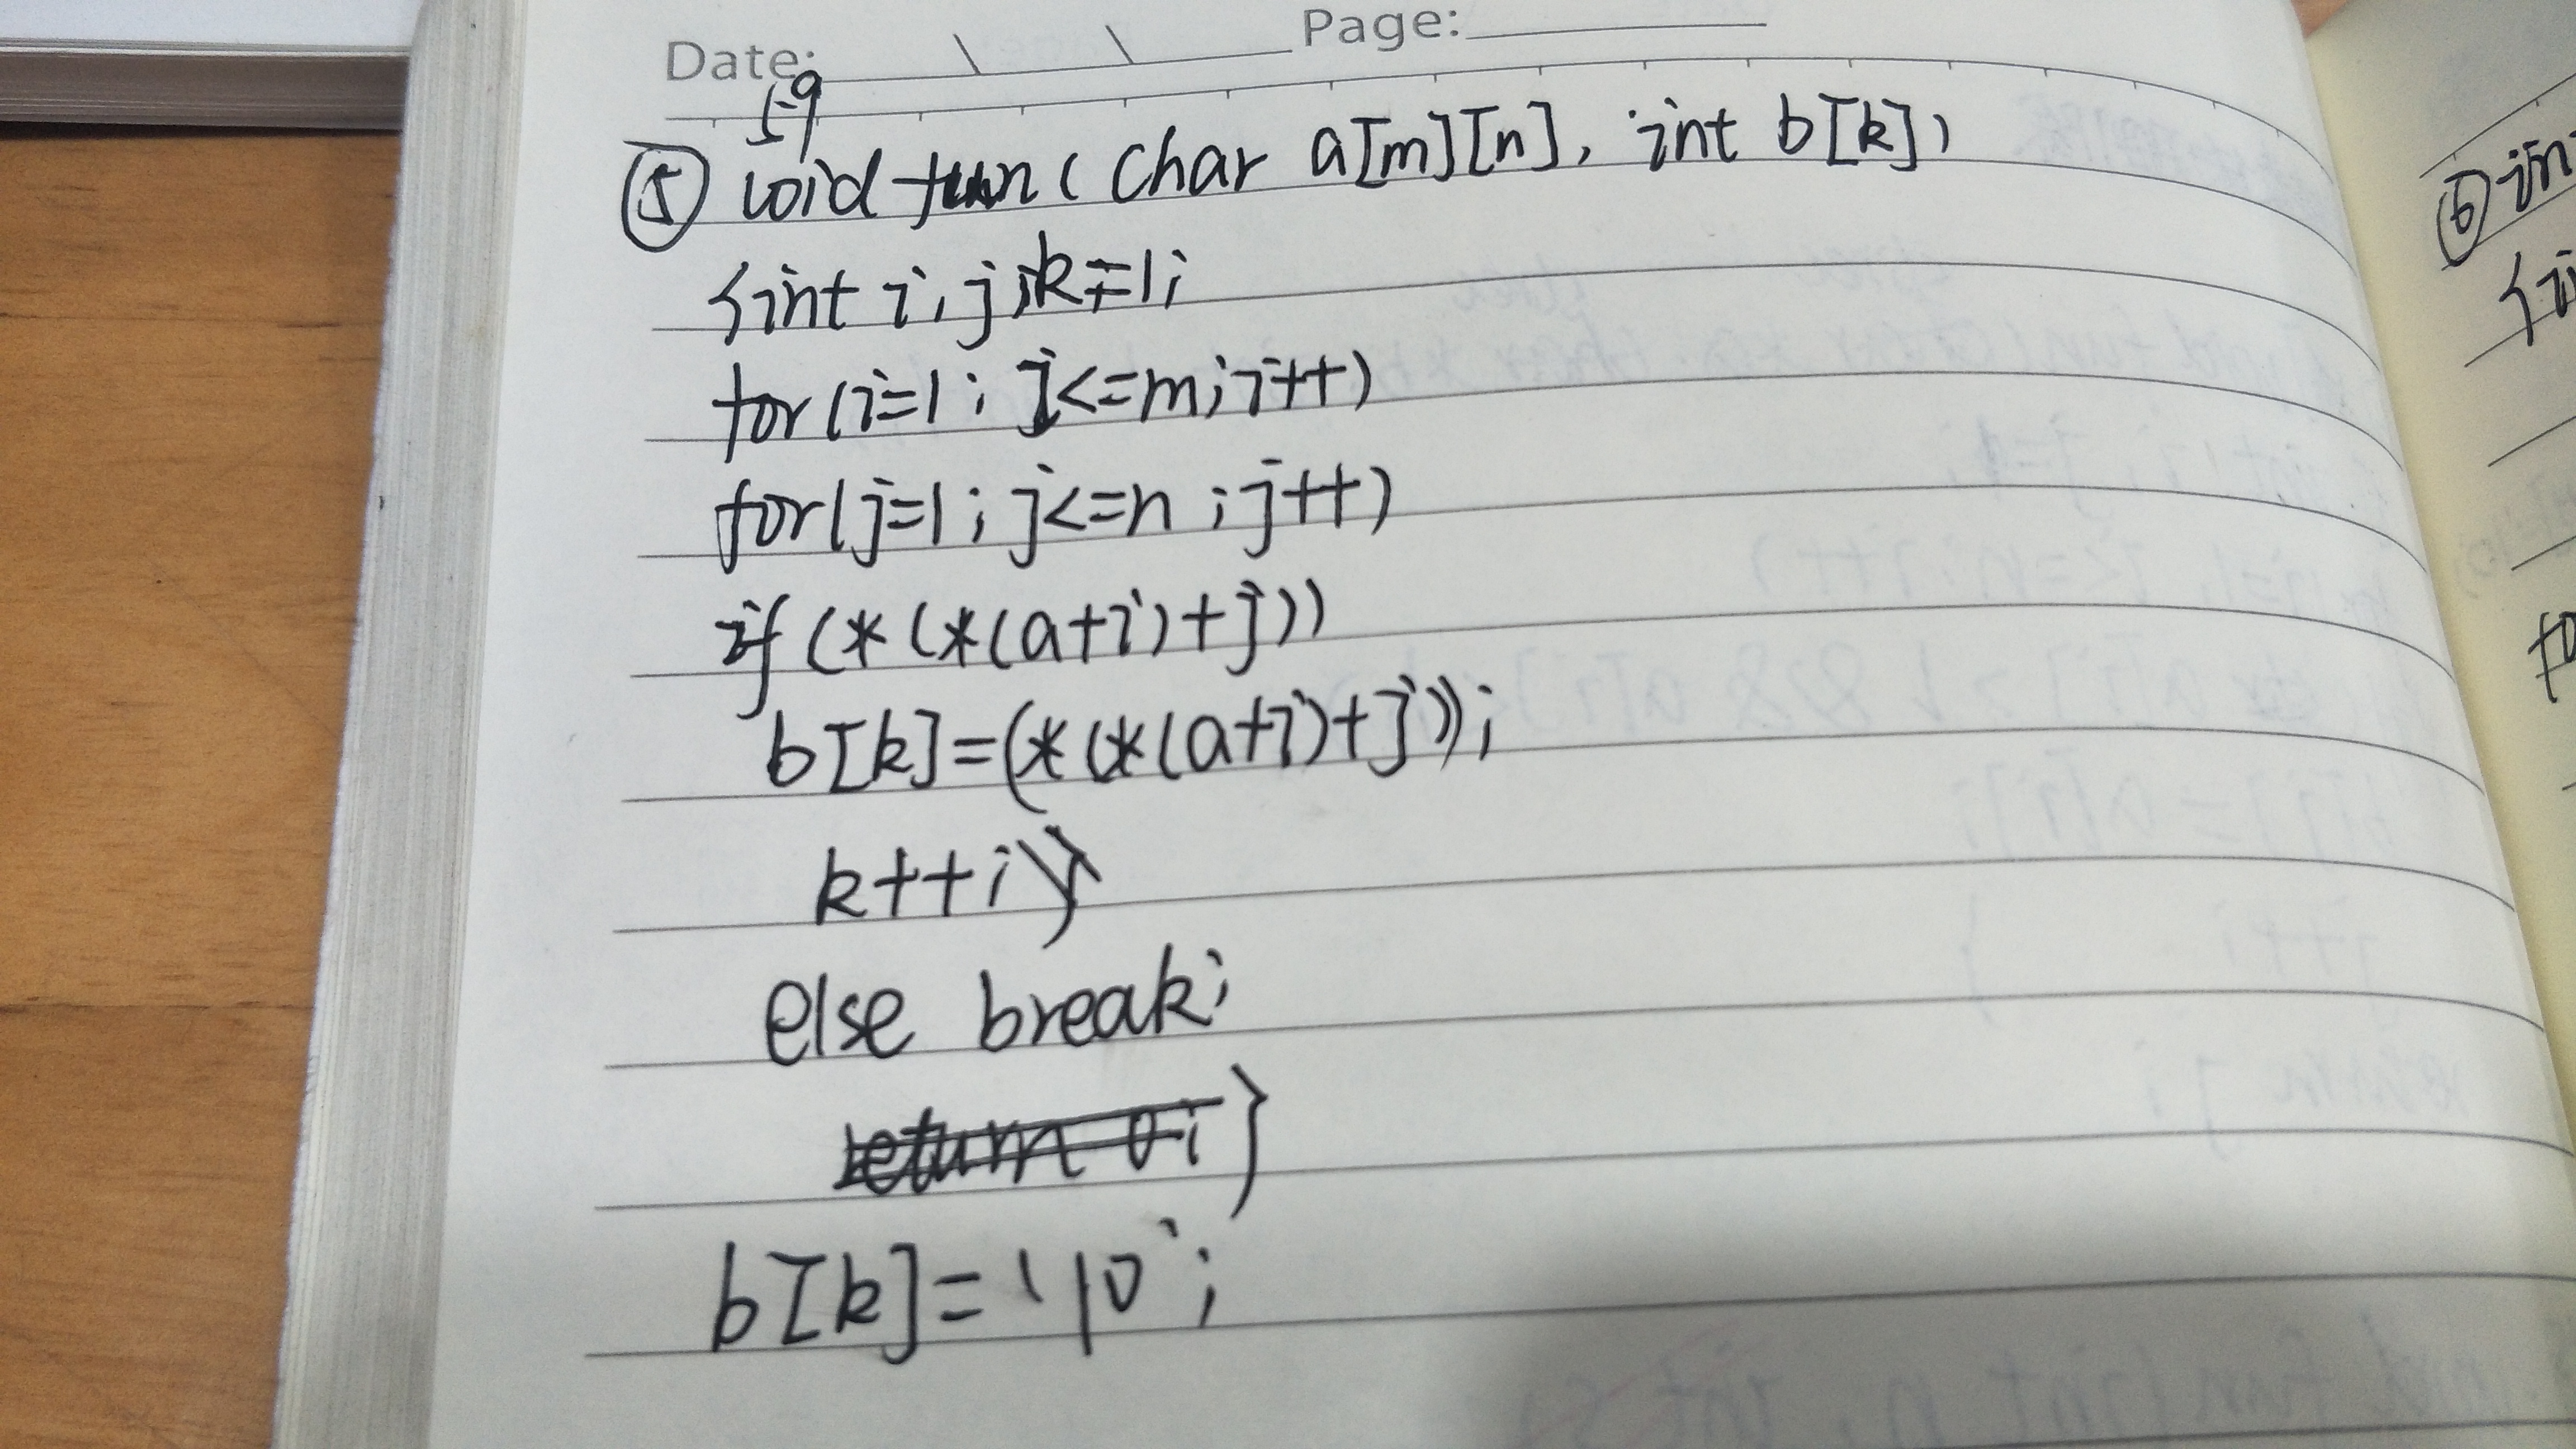 Date: \ \ Page:
59
⑤ void fun( char a[m][n], int b[k])
{int i,j,k=1;
for(i=1; i<=m;i++)
for(j=1; j<=n;j++)
if(*(*(a+i)+j))
b[k]=(*(*(a+i)+j));
k++;}
else break;
return 0; }
b[k]='\0';
⑥ in
{i
fo